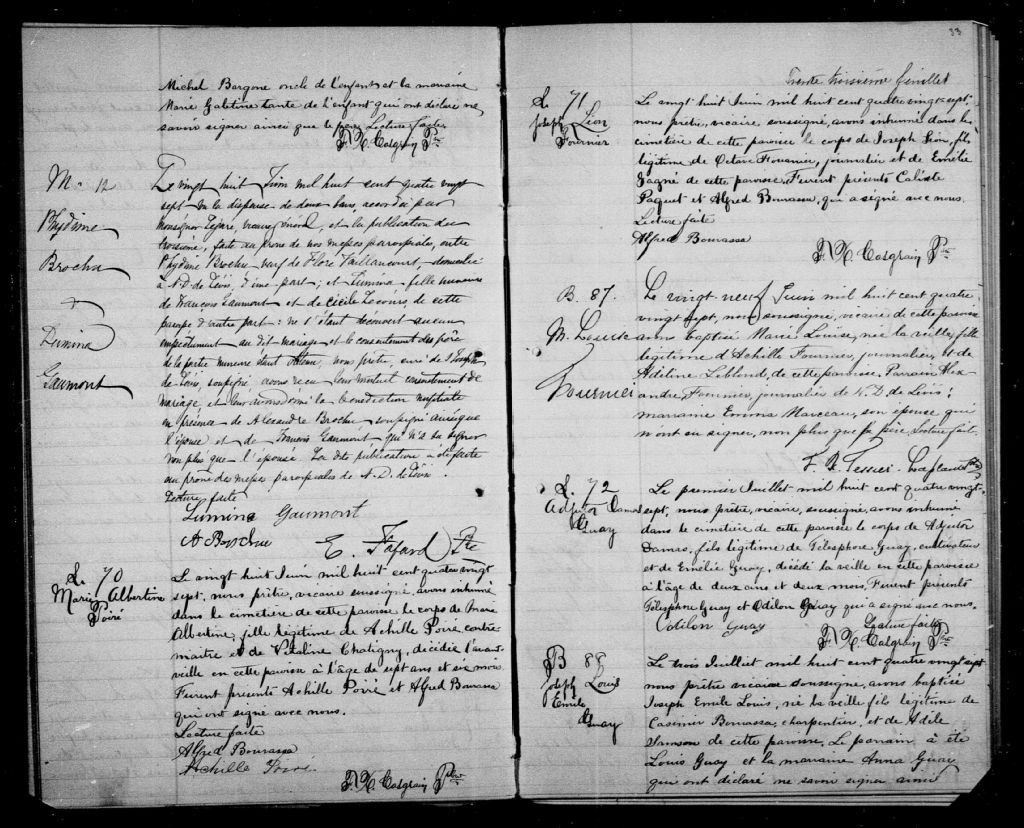 Michel Bargone oncle de l'enfant et la marraine
Marie Galabine tante de l'enfant qui ont déclaré ne
savoir signer ainsi que le père Lecture faite
F. X. Casgrain Ptre
M. 12
Phydime
Brochu
+
Lumina
Gaumont
Le vingt huit Juin mil huit cent quatre vingt
sept vu la dispense de deux bans accordée par
monseigneur Légaré, vicaire général, et la publication du
troisième, faite au prone de nos messes paroissiales, entre
Phydime Brochu veuf de Flore Vaillancourt, domicilié
à N.D de Lévis, d'une part; et Lumina fille mineure
de François Gaumont et de Cécile Lecours de cette
paroisse d'autre part: ne s'étant découvert aucun
empêchement au dit mariage et le consentement du père
de la partie mineure étant obtenu, nous prêtre, curé de St Joseph
de Lévis, soussigné, avons reçu leur mutuel consentement de
mariage et leur avons donné la bénédiction nuptiale
en présence de Alexandre Brochu soussigné ainsi que
l'épouse et de François Gaumont qui n'a su signer
non plus que l'époux. La dite publication a été faite
au prone des messes paroissiales de N. D. de Lévis.
Lecture faite
Lumina Gaumont
A Brochu
E. Fafard Ptre
S. 70
Marie Albertine
Poiré
Le vingt huit Juin mil huit cent quatre vingt
sept, nous prêtre, vicaire soussigné, avons inhumé
dans le cimetière de cette paroisse le corps de Marie
Albertine, fille légitime de Achille Poiré contre
maitre et de Vitaline Chatigny, décédée l'avant
veille en cette paroisse à l'âge de sept ans et six mois
Furent présents Achille Poiré et Alfred Bourassa
qui ont signé avec nous.
Lecture faite
Alfred Bourassa
Achille Poiré
F. X. Casgrain Ptre
33
Trente troisième feuillet
S. 71
Joseph Léon
Fournier
Le vingt huit Juin mil huit cent quatre vingt sept,
nous prêtre, vicaire, soussigné, avons inhumé dans le
cimetière de cette paroisse le corps de Joseph Léon, fils
légitime de Octave Fournier, journalier et de Emélie
Gagné de cette paroisse. Furent présents Calixte
Paquet et Alfred Bourassa, qui a signé avec nous.
Lecture faite
Alfred Bourassa
F. X. Casgrain Ptre
B. 87.
M. Louise
Fournier
Le vingt neuf Juin mil huit cent quatre
vingt sept, nous soussigné, vicaire de cette paroisse
avons baptisé Marie Louise, née la veille, fille
légitime d'Achille Fournier, journalier, et de
Adéline Leblond, de cette paroisse. Parrain Alex-
andre Fournier, journalier de N. D. de Lévis;
marraine Emma Marceau, son épouse qui
n'ont su signer, non plus que le père. Lecture faite.
F. X. Tessier-Laplante Ptre
S. 72
Adjutor Damas
Guay
Le premier Juillet mil huit cent quatre vingt-
sept, nous prêtre, vicaire, soussigné, avons inhumé
dans le cimetière de cette paroisse le corps de Adjutor
Damas, fils légitime de Télesphore Guay, cultivateur
et de Emélie Guay, décédé la veille en cette paroisse
à l'âge de deux ans et deux mois. Furent présents
Télesphore Guay et Odilon Guay qui a signé avec nous.
Lecture faite
Odilon Guay
F. X. Casgrain Ptre
B 88
Joseph Louis
Emile
Guay
Le trois Juillet mil huit cent quatre vingt sept
nous prêtre vicaire soussigné, avons baptisé
Joseph Emile Louis, né la veille fils légitime de
Casimir Bourassa, charpentier, et de Adèle
Samson de cette paroisse. Le parrain à été
Louis Guay et la marraine Anna Guay
qui ont déclaré ne savoir signer ainsi